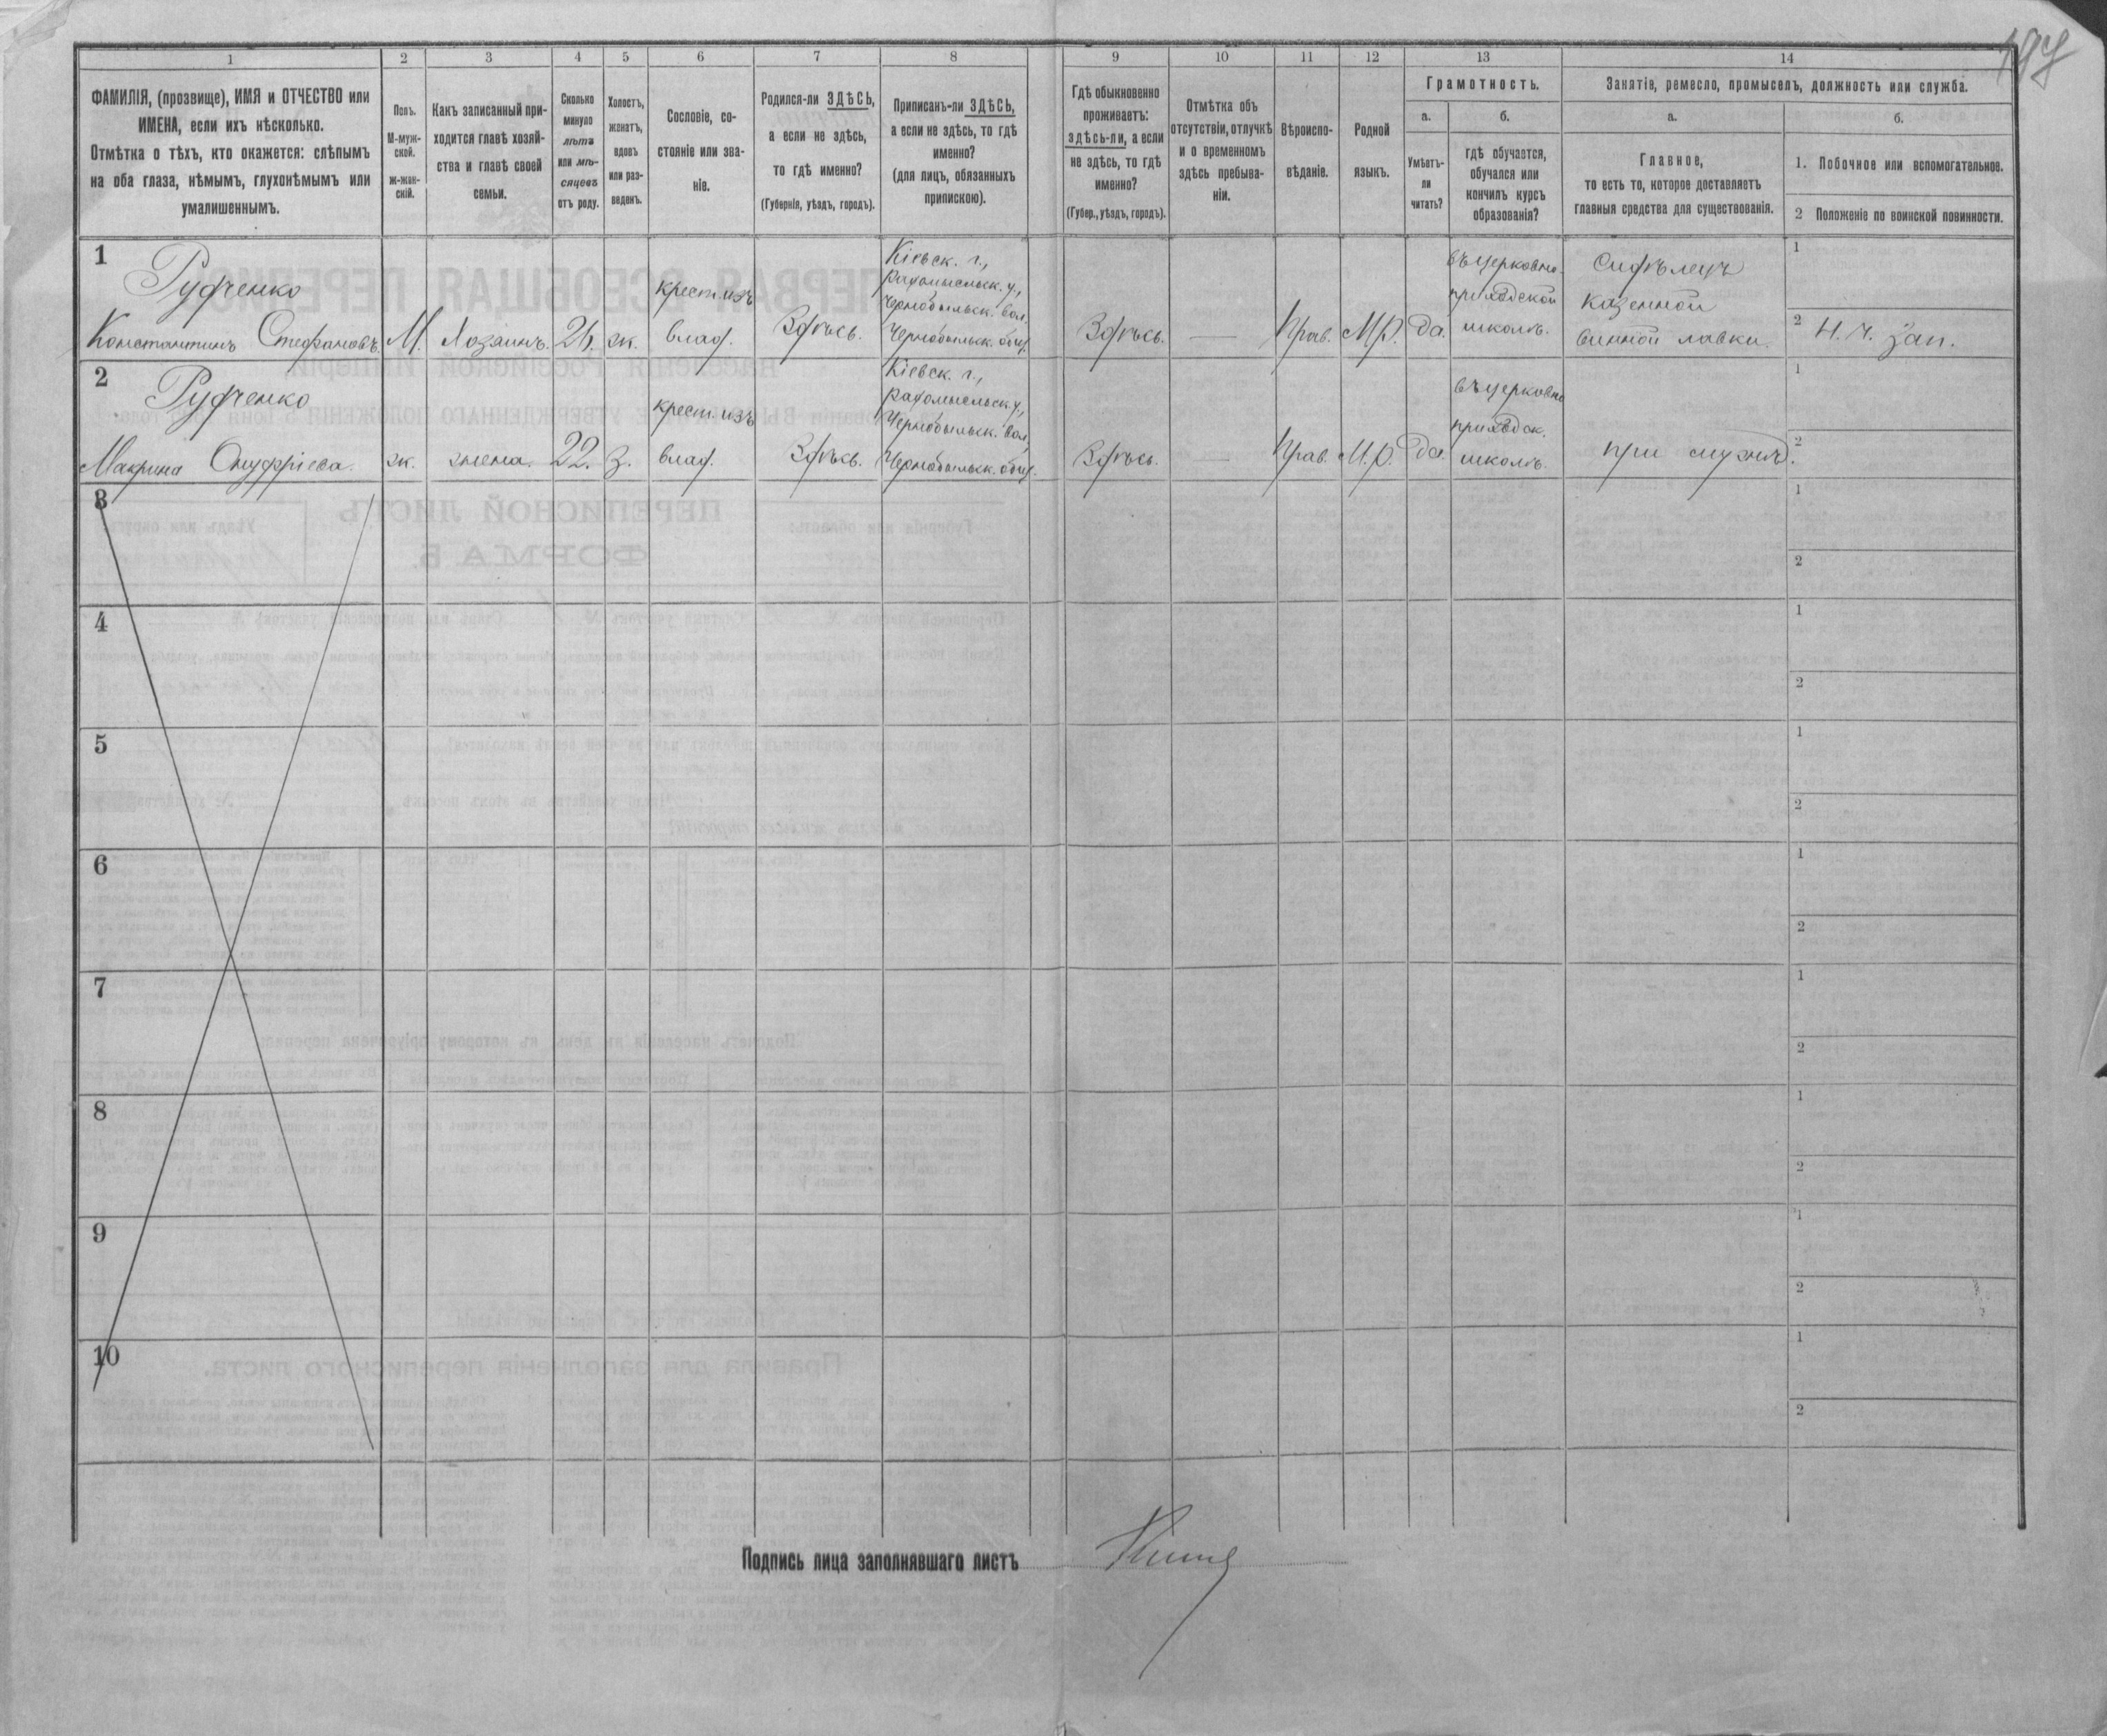 197
1 2 3 4 5 6 7 8 9 10 11 12 13 14
ФАМИЛІЯ, (прозвище), ИМЯ и ОТЧЕСТВО или
ИМЕНА, если ихъ нѣсколько.
Отмѣтка о тѣхъ, кто окажется: слѣпымъ
на оба глаза, нѣмымъ, глухонѣмымъ или
умалишеннымъ.
Полъ.
М-муж-
ской.
ж-жен-
скій.
Какъ записанный при-
ходится главѣ хозяй-
ства и главѣ своей
семьи.
Сколько
минуло
лѣтъ
или мѣ-
сяцевъ
отъ роду.
Холостъ,
женатъ,
вдовъ
или раз-
веденъ.
Сословіе, со-
стояніе или зва-
ніе.
Родился-ли ЗДѢСЬ,
а если не здѣсь,
то гдѣ именно?
(Губернія, уѣздъ, городъ).
Приписанъ-ли ЗДѢСЬ,
а если не здѣсь, то гдѣ
именно?
(для лицъ, обязанныхъ
припискою).
Гдѣ обыкновенно
проживаетъ:
здѣсь-ли, а если
не здѣсь, то гдѣ
именно?
(Губер., уѣздъ, городъ).
Отмѣтка объ
отсутствіи, отлучкѣ
и о временномъ
здѣсь пребыва-
ніи.
Вѣроиспо-
вѣданіе.
Родной
языкъ.
Грамотность.
а.
Умѣетъ-
ли
читать?
б.
гдѣ обучается,
обучался или
кончилъ курсъ
образованія?
Занятіе, ремесло, промыселъ, должность или служба.
а.
Главное,
то есть то, которое доставляетъ
главныя средства для существованія.
б.
1. Побочное или вспомогательное.
2 Положеніе по воинской повинности.
1
Рудченко
Константинъ Стефановъ.
М.
Хозяинъ.
ж.
крест. изъ
влад.
Здѣсь.
Кіевск. г.,
Радомысльск. у.,
Чернобыльск. вол.
Чернобыльск. общ.
Здѣсь.
—
Прав.
М.Р.
Да.
въ церковно-
приходской
школѣ.
Сидѣлецъ
казенной
винной лавки.
1
2 Н. Ч. Зап.
2
Рудченко
Макрина Онуфріева.
ж.
жена.
22.
З.
крест. изъ
влад.
Здѣсь.
Кіевск. г.,
Радомысльск. у.,
Чернобыльск. вол.
Чернобыльск. общ.
Здѣсь.
—
Прав.
М.Р.
Да.
въ церковно
приходск.
школѣ.
при мужѣ.
1
2
3
1
2
4
1
2
5
1
2
6
1
2
7
1
2
8
1
2
9
1
2
10
1
2
Подпись лица заполнявшаго листъ